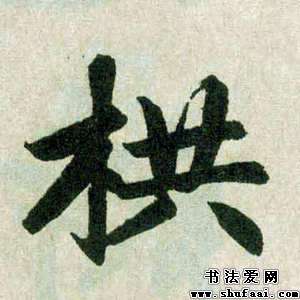 栱
书法爱网
www.shufaai.com